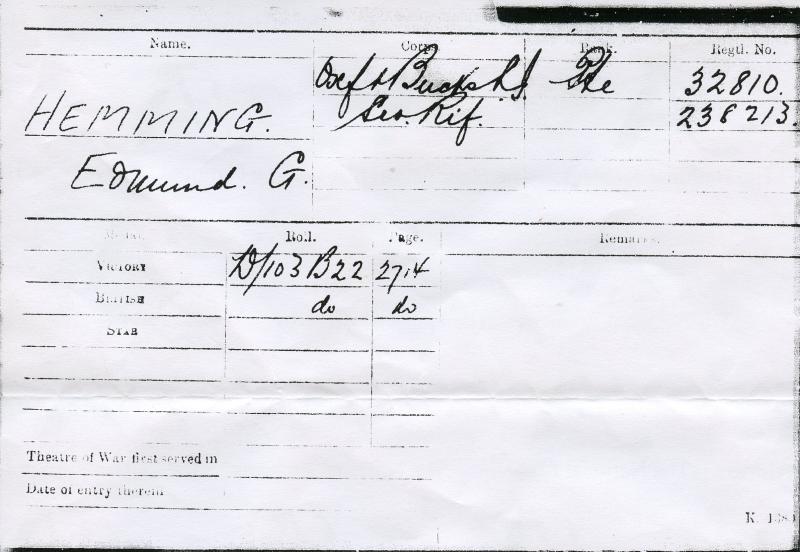 Name. Corps. Rank. Regtl. No.
HEMMING. Oxf & Bucks L.I. Pte 32810.
Sco. Rif. 238213.
Edmund. G.
Medal. Roll. Page. Remarks.
VICTORY D/103 B22 2714
BRITISH do do
STAR
Theatre of War first served in
Date of entry therein
K. 1380